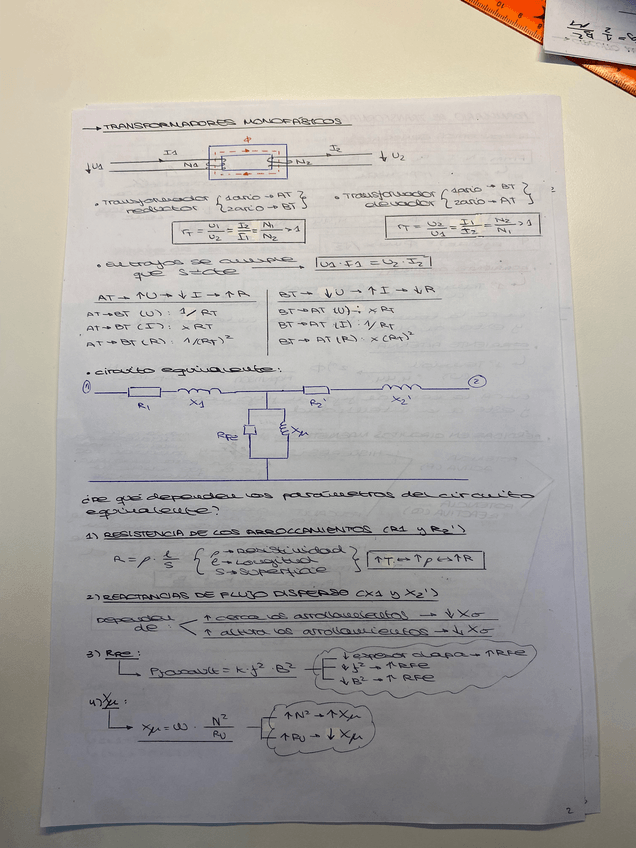 → TRANSFORMADORES MONOFÁSICOS
↓U1 I1 N1 N2 I2 ↓U2
• Transformador reductor { 1ario → AT
2ario → BT
• Transformador elevador { 1ario → BT
2ario → AT
rT = U1/U2 = I2/I1 = N1/N2 > 1
rT = U2/U1 = I1/I2 = N2/N1 > 1
• En trafos se cumple que S=cte → U1·I1 = U2·I2
AT → ↑U → ↓I → ↑R
AT→BT (U): 1/RT
AT→BT (I): xRT
AT→BT (R): 1/(RT)²
BT → ↓U → ↑I → ↓R
BT→AT (U): xRT
BT→AT (I): 1/RT
BT→AT (R): x(RT)²
• Circuito equivalente:
① R1 X1 R2' X2' ②
RFe Xμ
¿De qué dependen los parámetros del circuito
equivalente?
1) RESISTENCIA DE LOS ARROLLAMIENTOS (R1 y R2')
R = ρ · l/S { ρ→Resistividad
l→Longitud
S→Superficie } ↑T ↔ ↑ρ ↔ ↑R
2) REACTANCIAS DE FLUJO DISPERSO (X1 y X2')
Dependen de: ↑ cerca los arrollamientos → ↓Xσ
↑ altura los arrollamientos → ↓Xσ
3) RFe:
k·f²·B²
↓ espesor chapa → ↑RFe
↓f² → ↑RFe
↓B² → ↑RFe
4) Xμ:
Xμ = ω · N²/RU
↑N² → ↑Xμ
↑RU → ↓Xμ
2